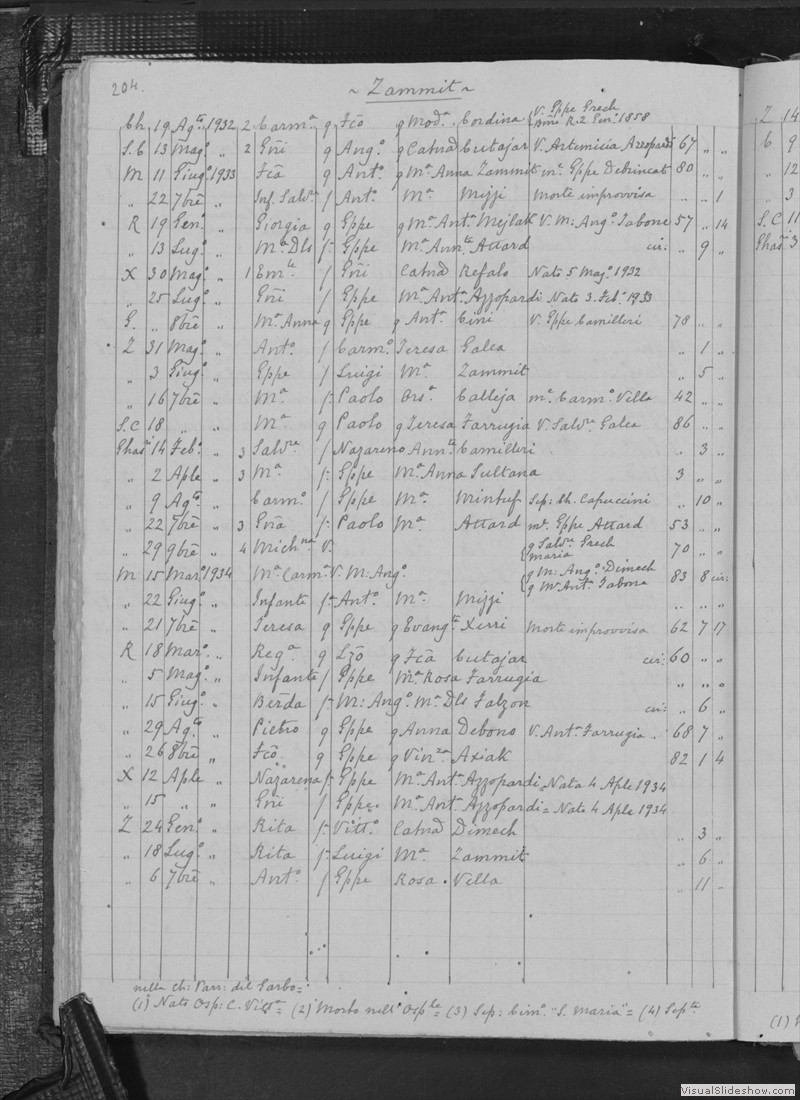 204. ~ Zammit ~
Ch 19 Agto 1932 2 Carma g Fco g Moda Cordina { V. Eppe Grech
R. 2 Genº 1858
S.C 13 Magº „ 2 Gñi g Angº g Catnd Cutajar V. Artemisia Azzopardi 67 „ „
M 11 Giugº 1933 Fca g Antº g Mª Anna Zammit mº Eppe Debrincat 80 „ „
„ 22 7bre „ Inf. Salvra f Antº Mª Mizzi Morte improvvisa „ „ 1
R 19 Genº „ Giorgia g Eppe g Mª Antª Mejlak V. M: Angº Tabone 57 „ 14
„ 13 Lugº „ Mª Dls f: Eppe Mª Annta Attard cir: „ 9 „
X 30 Magº „ 1 Emle f Gñi Catnd Refalo Nato 5 Magº 1932
„ 25 Lugº „ Gñi f Eppe Mª Antª Azzopardi Nato 3. Febº 1933
G. „ 8bre „ Mª Anna g Eppe g Antª Cini V. Eppe Camilleri 78 „ „
Z 31 Magº „ Antº f Carmº Teresa Galea „ 1 „
„ 3 Giugº „ Eppe f Luigi Mª Zammit „ 5 „
„ 16 7bre „ Mª f: Paolo Orsª Calleja mª Carmº Villa 42 „ „
S.C 18 „ „ Mª g Paolo g Teresa Farrugia V. Salvre Galea 86 „ „
Ghasri 14 Febº „ 3 Salvre f Nazareno Annta Camilleri „ 3 „
„ 2 Aple „ 3 Mª f: Eppe Mª Anna Sultana 3 „ „
„ 9 Agto „ Carmº f Eppe Mª Mintuf Sep: Ch. Capuccini „ 10 „
„ 22 7bre „ 3 Gña f: Paolo Mª Attard mª Eppe Attard 53 „ „
„ 29 9bre „ 4 Michna V. { g Salvre Grech
maria 70 „ „
M 15 Marº 1934 Mª Carmª V. M: Angº { g M: Angº Dimech
g Mª Antª Tabone 83 8 cir:
„ 22 Giugº „ Infante f: Antº Mª Mizzi „ „ „
„ 21 7bre „ Teresa g Eppe g Evangta Xerri Morte improvvisa 62 7 17
R 18 Marº „ Regª g Lzo g Fca Cutajar cir: 60 „ „
„ 5 Magº „ Infante f Eppe Mª Rosa Farrugia „ „ „
„ 15 Giugº „ Berda f: M: Angº Mª Dls Falzon cir: „ 6 „
„ 29 Agto „ Pietro g Eppe g Anna Debono V. Antª Farrugia. 68 7 „
„ 26 8bre „ Fco g Eppe g Vinza Axiak 82 1 4
X 12 Aple „ Nazarena f: Eppe Mª Antª Azzopardi. Nata 4 Aple 1934
„ 15 „ „ Gñi f Eppe. Mª Antª Azzopardi = Nato 4 Aple 1934
Z 24 Genº „ Rita f: Vittº Catnd Dimech „ 3 „
„ 18 Lugº „ Rita f: Luigi Mª Zammit „ 6 „
„ 6 7bre „ Antº f Eppe Rosa Villa „ 11 „
nella ch: Parr: del Garbo =
(1) Nato Osp: C. Vittª = (2) Morto nell' Osple = (3) Sep: Cimº "S. Maria" = (4) Septa
Z 14
C 9
„ 12
„ 3
S.C 11
Ghasri 3
(1)
VisualSlideshow.com